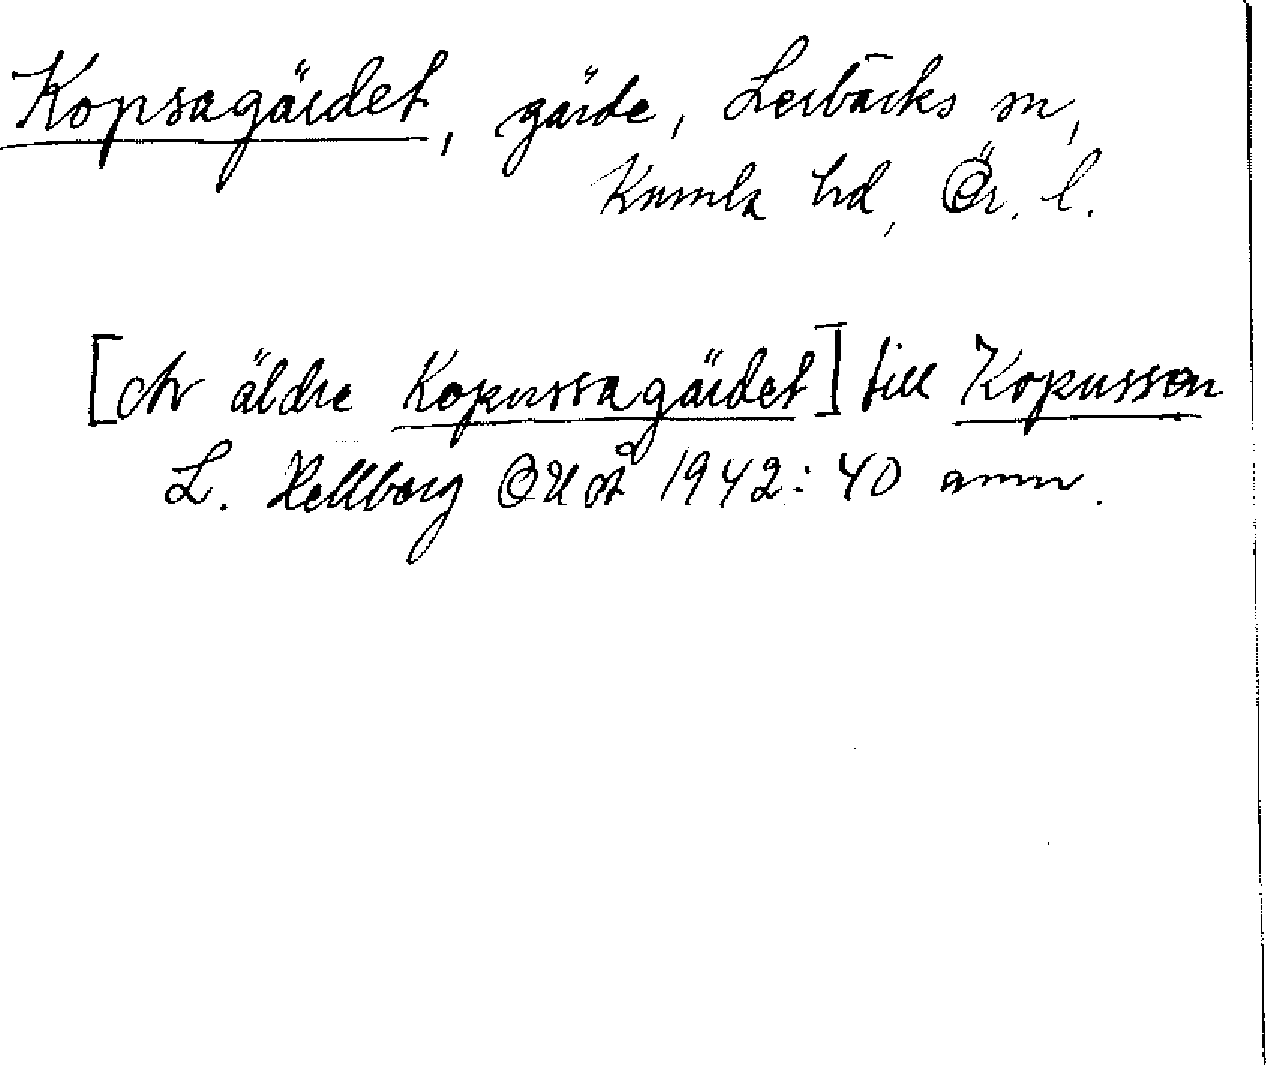 Kopsagärdet, gärde, Lerbäcks sn,
Kumla hd, Ör. l.
[av äldre Kopussagärdet] till Kopusson
L. Hellberg OUÅ 1942: 40 anm.